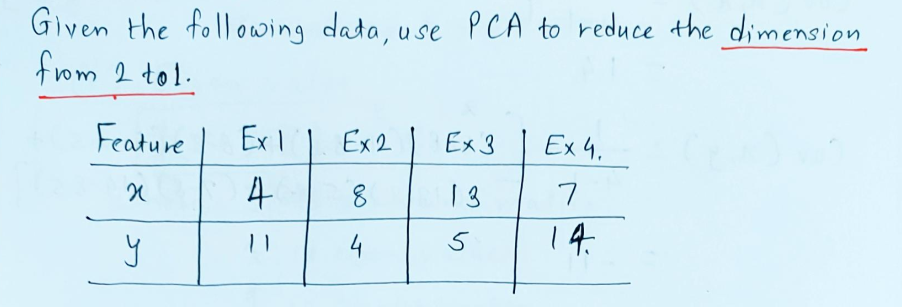 Given the following data, use PCA to reduce the dimension
from 2 to 1.
Feature Ex 1 Ex 2 Ex 3 Ex 4.
x 4 8 13 7
y 11 4 5 14.